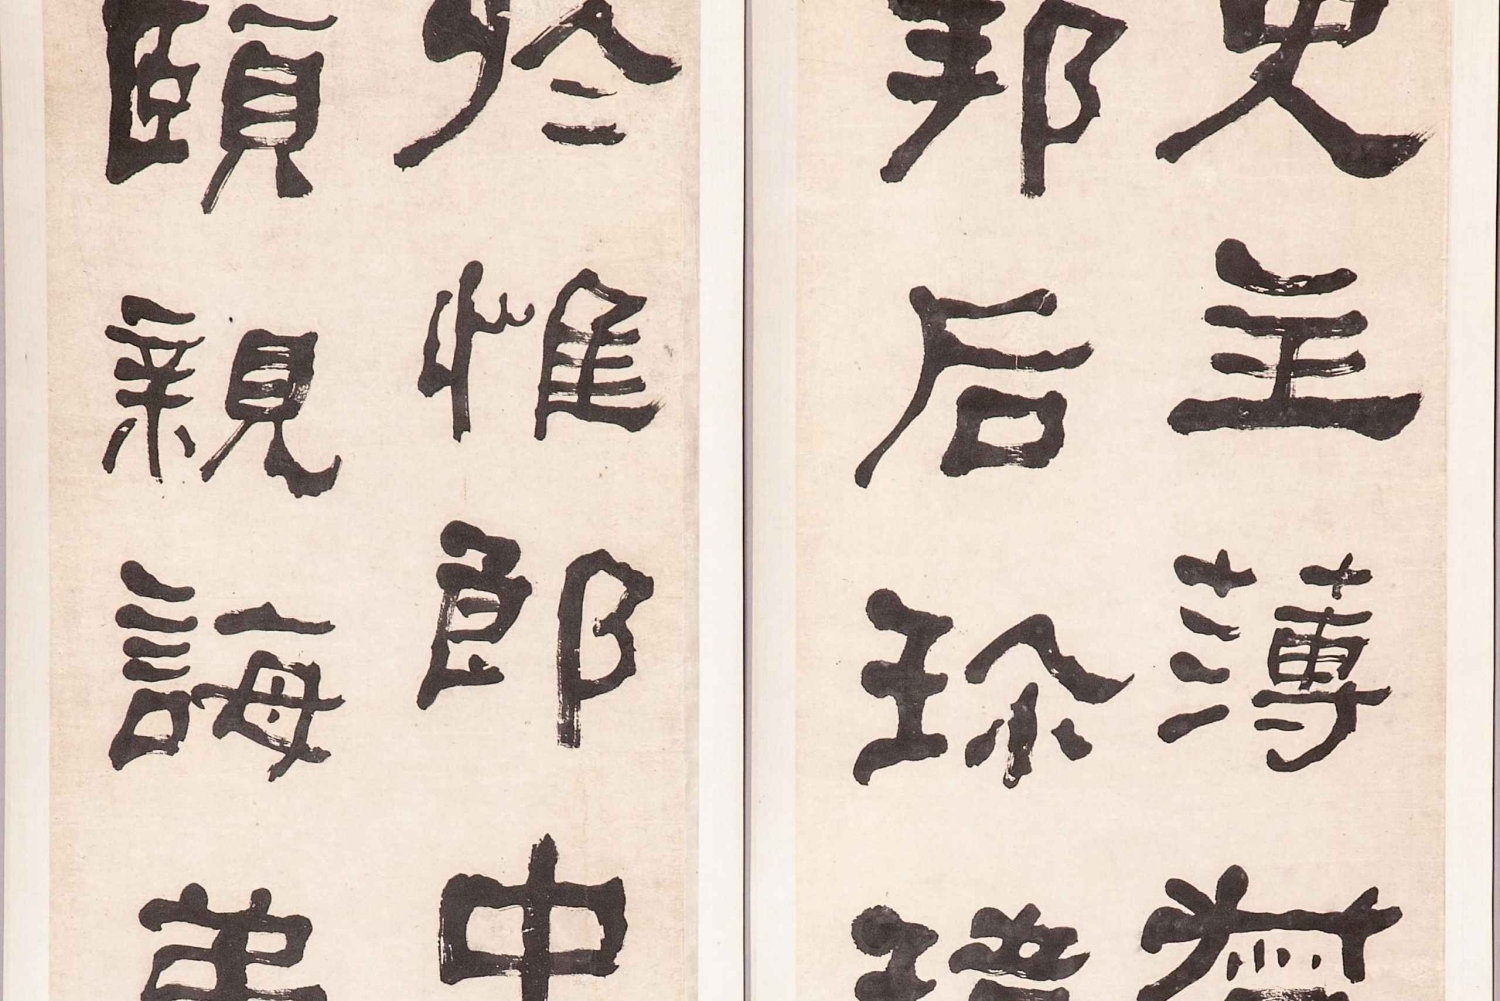 史主薄
邦后珎瑋
於惟郎中
頤親誨弟